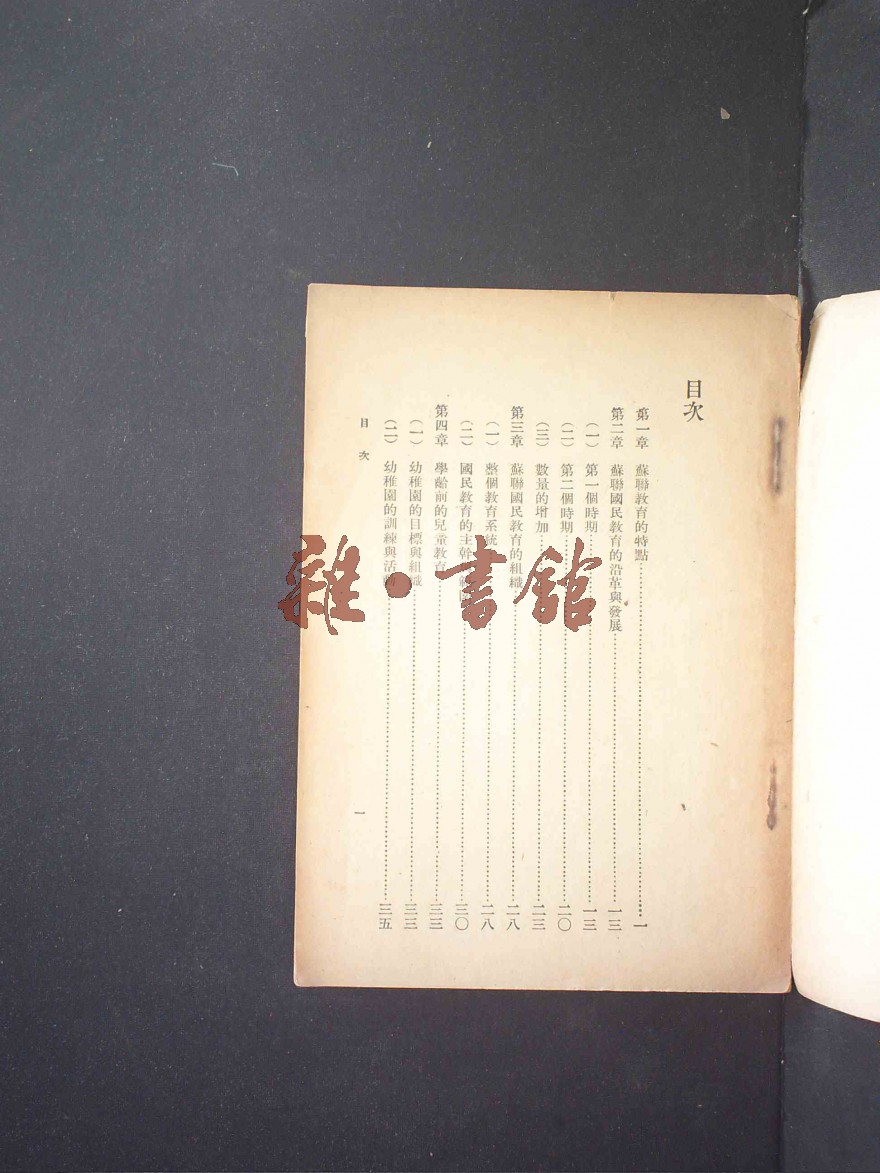 目次
第一章 蘇聯教育的特點……一
第二章 蘇聯國民教育的沿革與發展……一三
(一) 第一個時期……一三
(二) 第二個時期……二〇
(三) 數量的增加……二三
第三章 蘇聯國民教育的組織……二八
(一) 整個教育系統……二八
(二) 國民教育的主幹……三〇
第四章 學齡前的兒童教育……三三
(一) 幼稚園的目標與組織……三三
(二) 幼稚園的訓練與活動……三五
目次
一
雜·書館